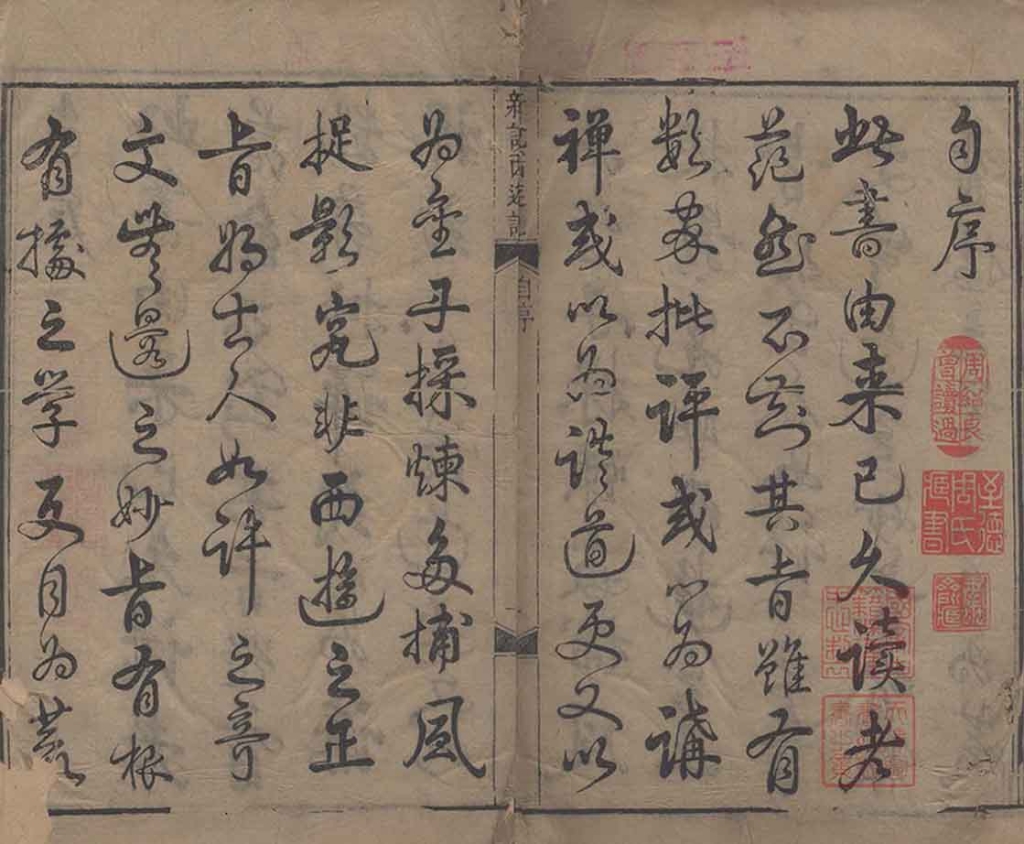 自序
此書由来已久讀者
茫然不知其旨雖有
數家批評或以為講
禪或以為談道更又以
新說西遊記
自序
為金丹採煉多捕風
捉影究非西遊之正
旨將古人如許之奇
文無邊之妙旨有根
有據之学更目為荒
周紹良
曾讀過